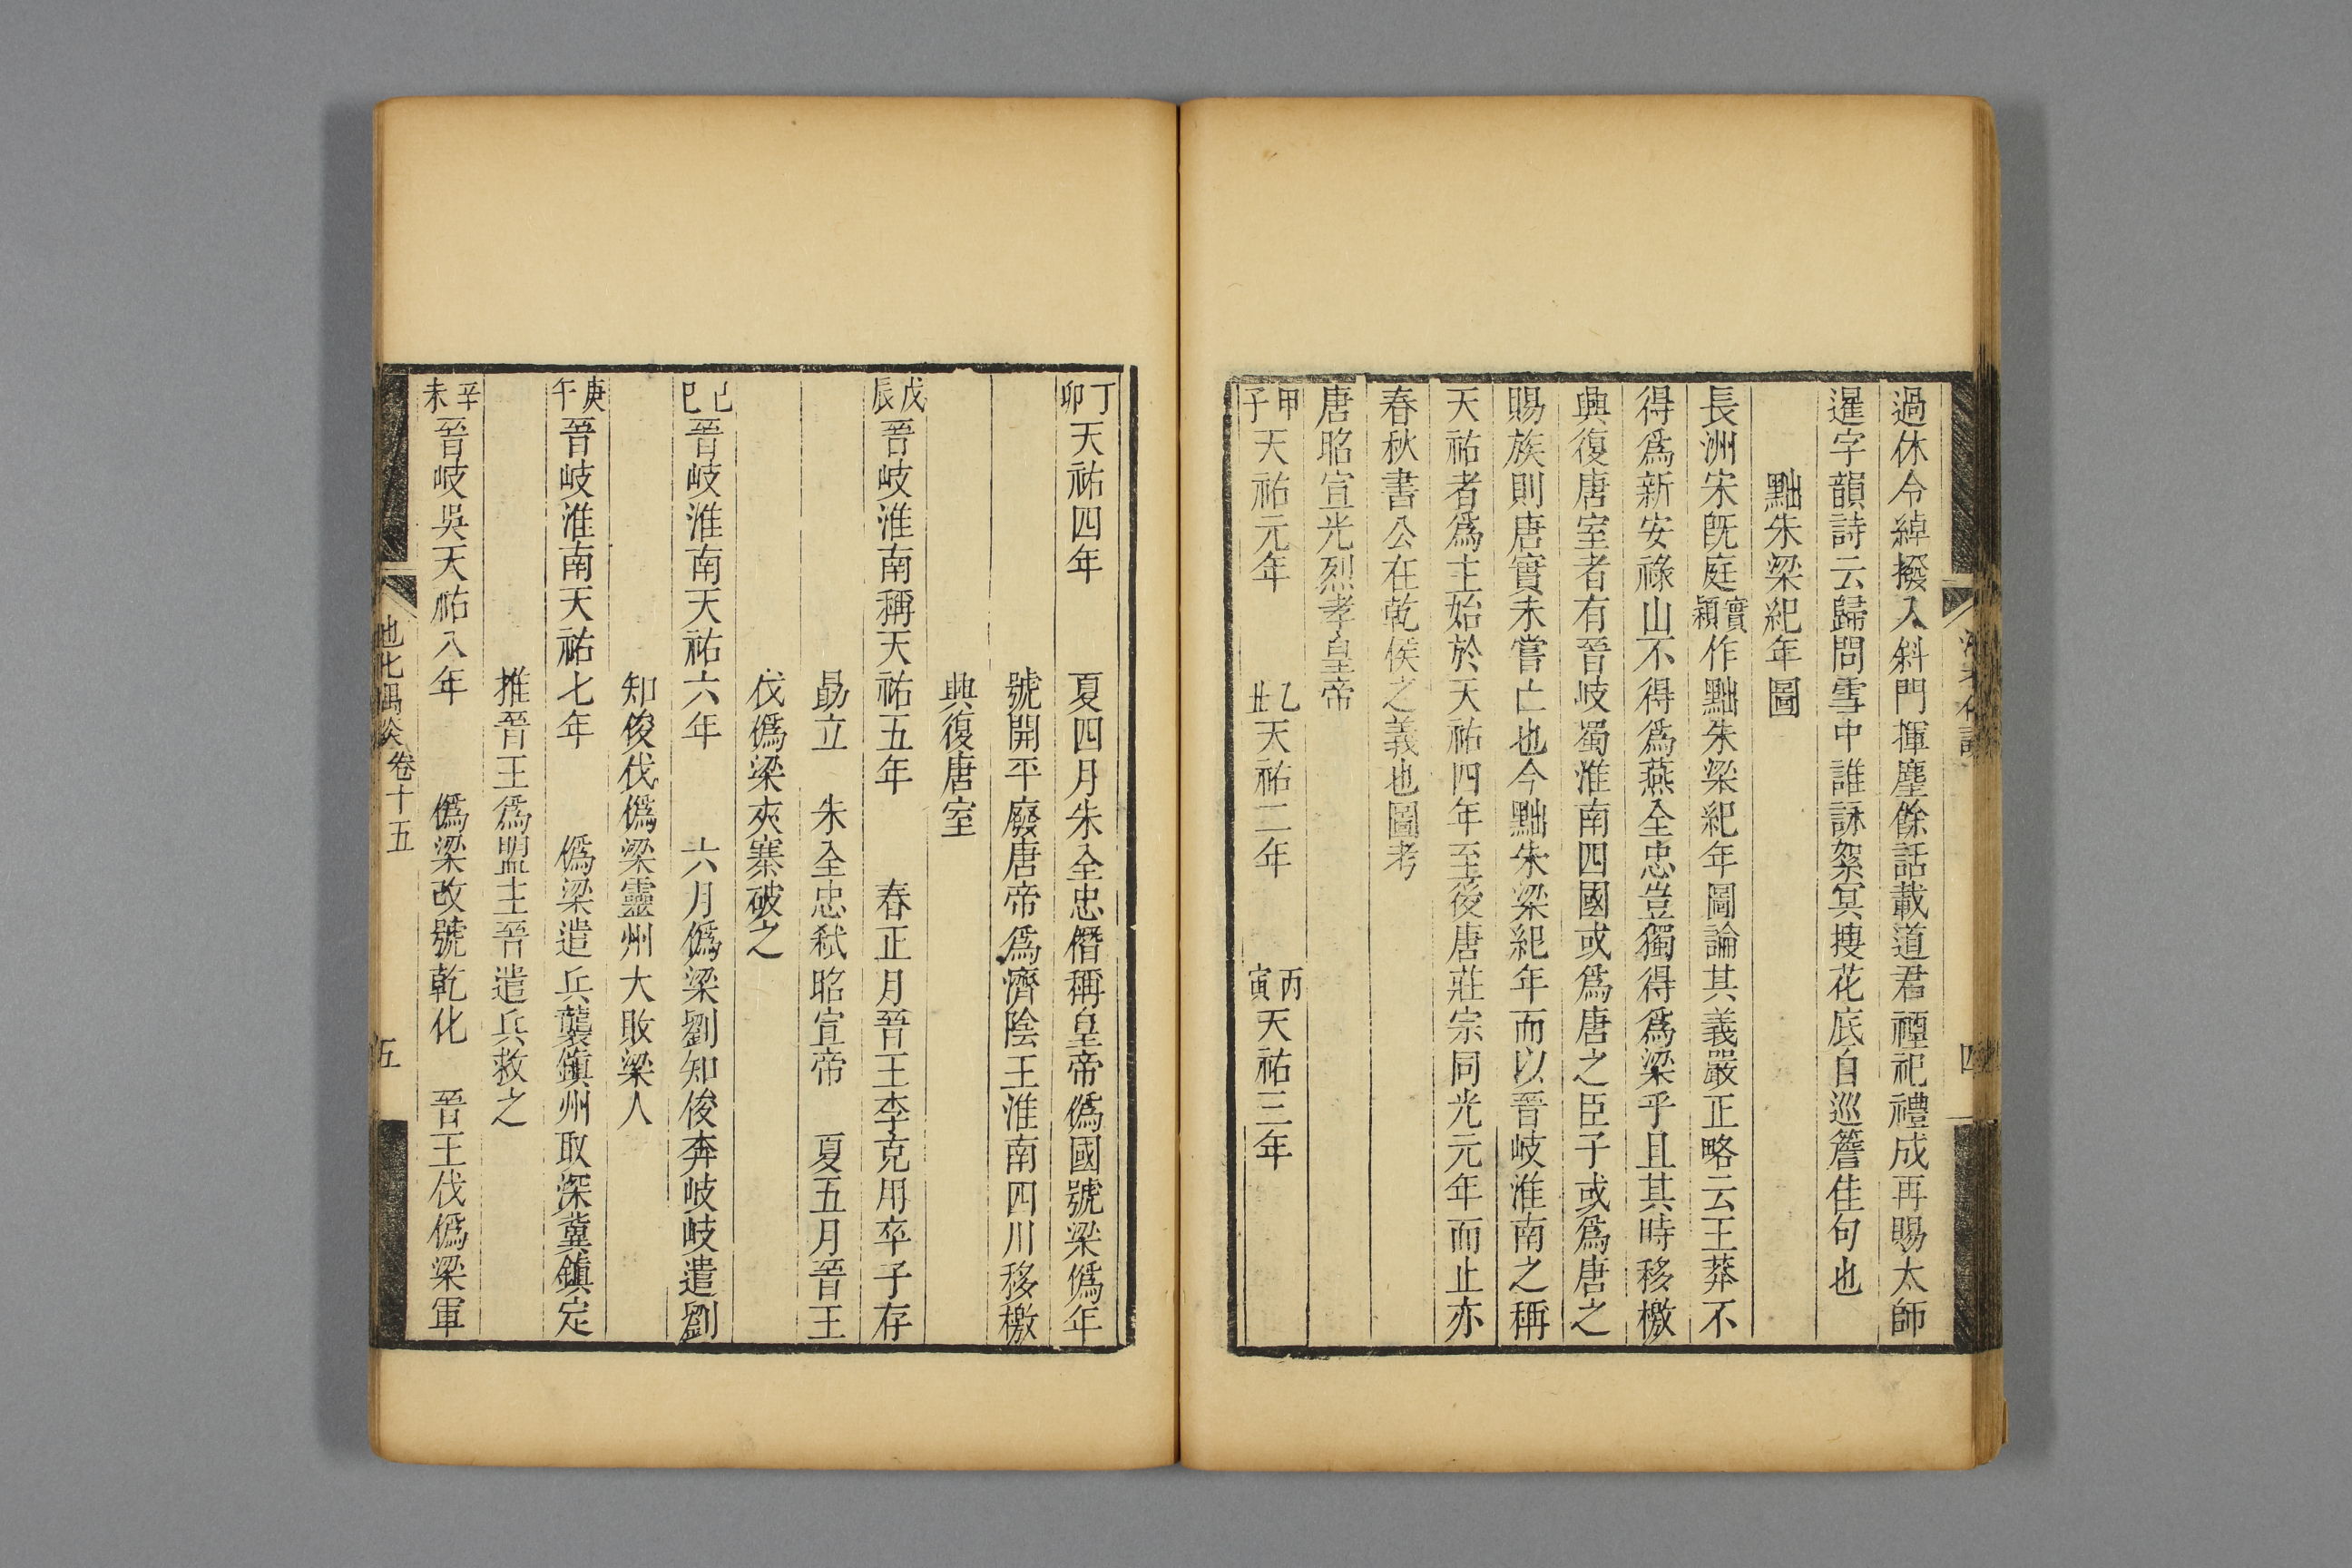 過休令綽撥入斜門揮塵餘話載道君禋祀禮成再賜太師
暹字韻詩云歸問雪中誰詠絮冥摉花底自巡簷佳句也
黜朱梁紀年圖
長洲宋旣庭實穎作黜朱梁紀年圖論其義嚴正略云王莽不
得爲新安祿山不得爲燕全忠豈獨得爲梁乎且其時移檄
興復唐室者有晉岐蜀淮南四國或爲唐之臣子或爲唐之
賜族則唐實未嘗亡也今黜朱梁紀年而以晉岐淮南之稱
天祐者爲主始於天祐四年至後唐莊宗同光元年而止亦
春秋書公在乾侯之義也圖考
唐昭宣光烈孝皇帝
甲子天祐元年 乙丑天祐二年 丙寅天祐三年
四
丁卯天祐四年 夏四月朱全忠僭稱皇帝僞國號梁僞年
號開平廢唐帝爲濟陰王淮南四川移檄
興復唐室
戊辰晉岐淮南稱天祐五年 春正月晉王李克用卒子存
勗立 朱全忠弒昭宣帝 夏五月晉王
伐僞梁夾寨破之
己巳晉岐淮南天祐六年 六月僞梁劉知俊奔岐岐遣劉
知俊伐僞梁靈州大敗梁人
庚午晉岐淮南天祐七年 僞梁遣兵襲鎭州取深冀鎭定
推晉王爲盟主晉遣兵救之
辛未晉岐吳天祐八年 僞梁改號乾化 晉王伐僞梁軍
池北偶談卷十五 五